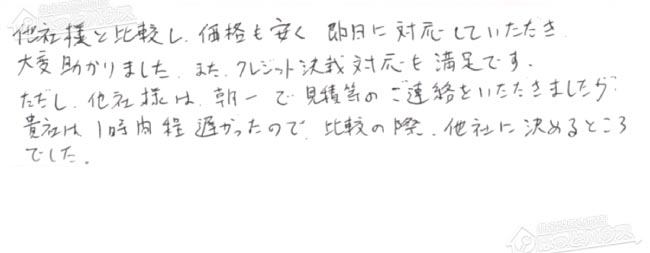 他社様と比較し、価格も安く 即日に対応していただき、
大変助かりました。また、クレジット決裁対応も満足です。
ただし、他社様は、朝一で見積等のご連絡をいただきましたが
貴社は1時間程遅かったので、比較の際、他社に決めるところ
でした。